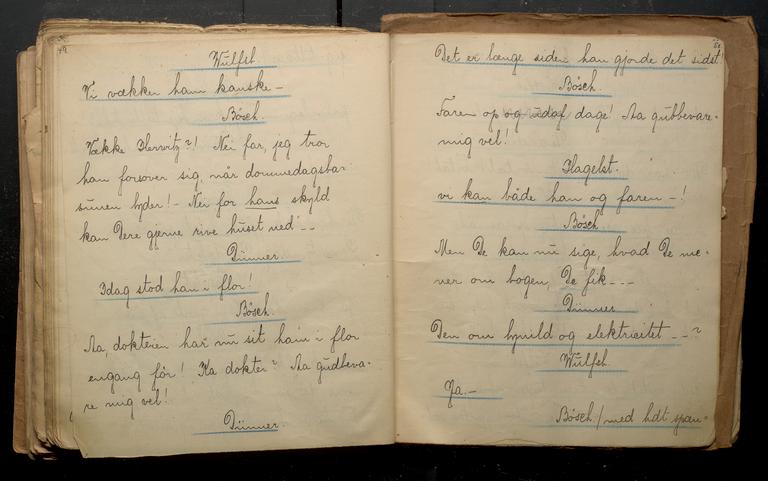 49
Wulfst
Vi vækken ham kanske –
Bösch.
Vække Herwitz?! Nei far, jeg tror
han forsover sig, når dommedagsba-
sunen lyder! – Nei for hans skyld
kan Dere gjerne rive huset ned – –
Dünner.
Idag stod han i flor!
Bösch.
Aa, dokteren har nu sit ham i flor
engang før! Ha dokter? Aa gudbeva-
re mig vel!
Dünner.
50
Det er længe siden han gjorde det sidst
Bösch.
Faren op og udaf dage! Aa gubbevare-
mig vel!
Hagelst.
vi kan både han og faren –!
Bösch.
Men De kan nu sige, hvad De me-
ner om bogen, De fik – – –
Dünner
Den om hvuld og elektricitet – – ?
Wulfst.
Ja. –
Bösch / med hdt span-